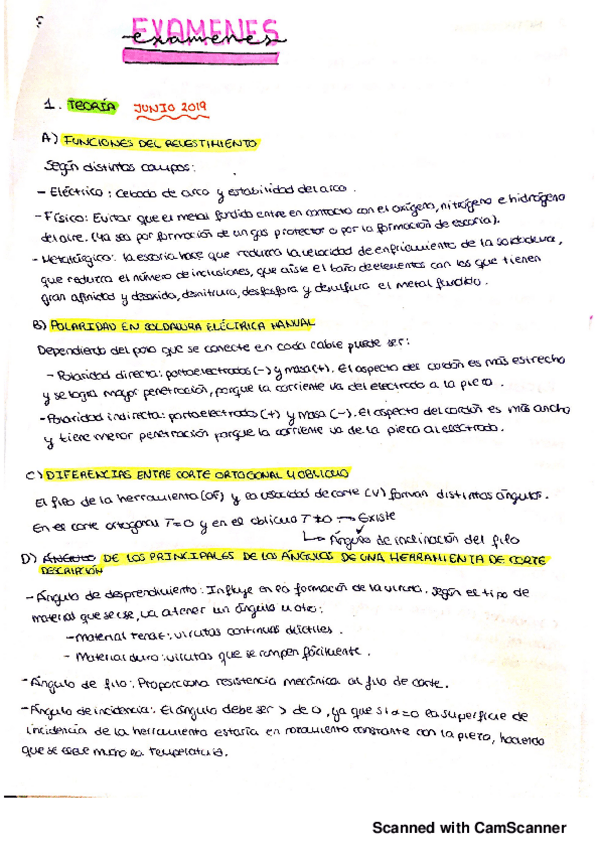 EXAMENES
examenes
1. TEORÍA JUNIO 2019
A) FUNCIONES DEL REVESTIMIENTO
Según distintos campos:
- Eléctrico: Cebado de arco y estabilidad del arco.
- Físico: Evitar que el metal fundido entre en contacto con el oxígeno, nitrógeno e hidrógeno
del aire. (Ya sea por formación de un gas protector o por la formación de escoria).
- Metalúrgico: la escoria hace que reduzca la velocidad de enfriamiento de la soldadura,
que reduzca el número de inclusiones, que aisle el baño de elementos con los que tienen
gran afinidad y desoxida, desnitrura, desfosfora y desulfura el metal fundido.
B) POLARIDAD EN SOLDADURA ELÉCTRICA MANUAL
Dependiendo del polo que se conecte en cada cable puede ser:
- Polaridad directa: portaelectrodos (-) y masa (+). El aspecto del cordón es más estrecho
y se logra mayor penetración, porque la corriente va del electrodo a la pieza.
- Polaridad indirecta: portaelectrodos (+) y masa (-). El aspecto del cordón es más ancho
y tiene menor penetración porque la corriente va de la pieza al electrodo.
C) DIFERENCIAS ENTRE CORTE ORTOGONAL Y OBLICUO
El filo de la herramienta (OF) y la velocidad de corte (V) forman distintos ángulos.
En el corte ortogonal T=0 y en el oblicuo T≠0 → Existe
↳ Ángulo de inclinación del filo
D) ÁNGULO DE LOS PRINCIPALES DE LOS ÁNGULOS DE UNA HERRAMIENTA DE CORTE
DESCRIPCIÓN
- Ángulo de desprendimiento: Influye en la formación de la viruta. Según el tipo de
material que se use, va a tener un ángulo u otro:
- Material tenaz: virutas continuas dúctiles.
- Material duro: virutas que se rompen fácilmente.
- Ángulo de filo: Proporciona resistencia mecánica al filo de corte.
- Ángulo de incidencia: El ángulo debe ser > de 0, ya que si α=0 la superficie de
incidencia de la herramienta estaría en rozamiento constante con la pieza, haciendo
que se eleve mucho la temperatura.
Scanned with CamScanner